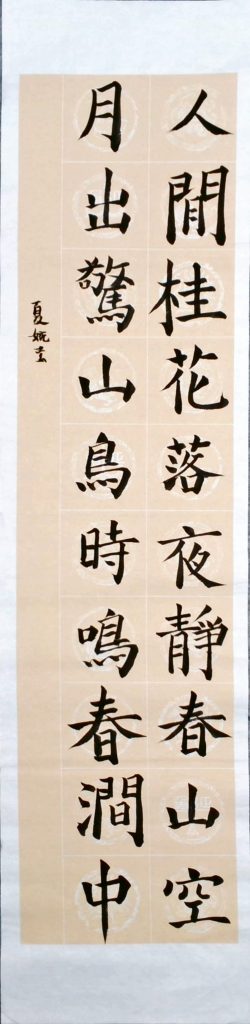 人閒桂花落夜靜春山空
月出驚山鳥時鳴春澗中
夏婉